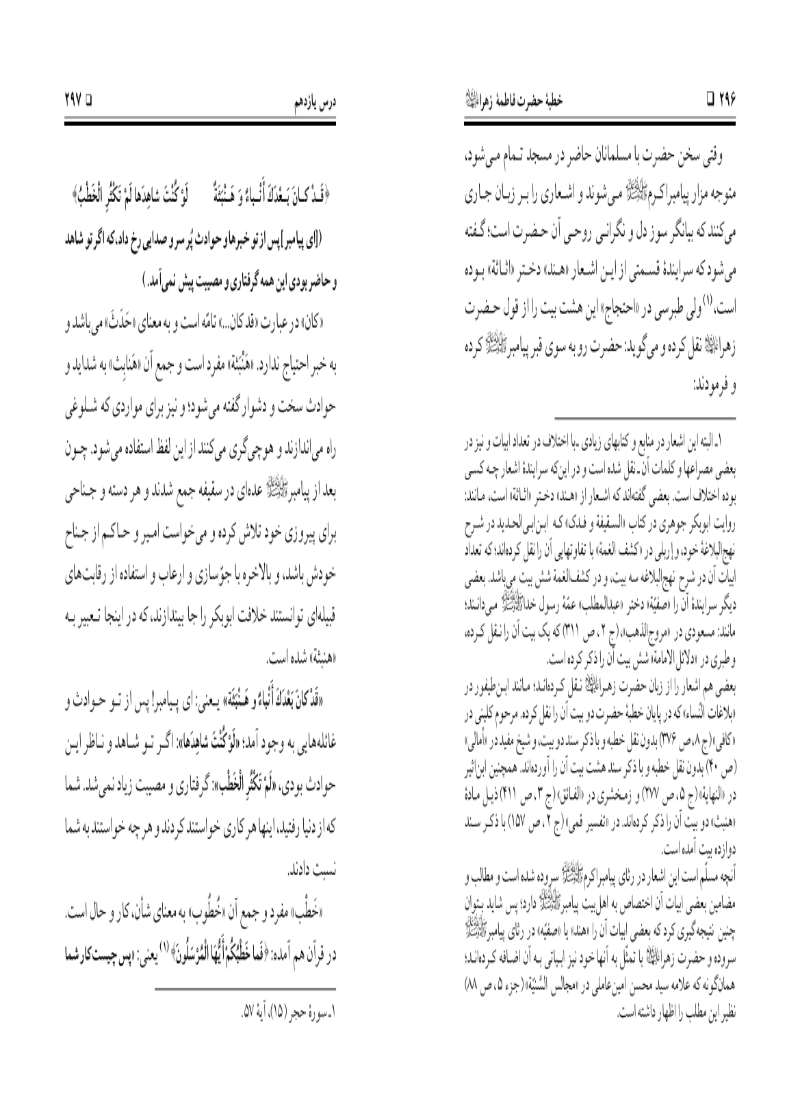 ۲۹۶ ❑ خطبهٔ حضرت فاطمهٔ زهرا
وقتی سخن حضرت با مسلمانان حاضر در مسجد تمام می‌شود،
متوجه مزار پیامبراکرمﷺ می‌شوند و اشعاری را بر زبان جاری
می‌کنند که بیانگر سوز دل و نگرانی روحی آن حضرت است؛ گفته
می‌شود که سرایندهٔ قسمتی از این اشعار «هند» دختر «اثاثة» بوده
است،(۱) ولی طبرسی در «احتجاج» این هشت بیت را از قول حضرت
زهرا نقل کرده و می‌گوید: حضرت رو به سوی قبر پیامبرﷺ کرده
و فرمودند:
۱ـ البته این اشعار در منابع و کتابهای زیادی ـ با اختلاف در تعداد ابیات و نیز در
بعضی مصراعها و کلمات آن ـ نقل شده است و در این‌که سرایندهٔ اشعار چه کسی
بوده اختلاف است. بعضی گفته‌اند که اشعار از «هند» دختر «اثاثة» است، مانند:
روایت ابوبکر جوهری در کتاب «السقیفة و فدک» که ابن‌ابی‌الحدید در شرح
نهج‌البلاغهٔ خود، و إربلی در «کشف الغمة» با تفاوتهایی آن را نقل کرده‌اند؛ که تعداد
ابیات آن در شرح نهج‌البلاغه سه بیت، و در کشف‌الغمة شش بیت می‌باشد. بعضی
دیگر سرایندهٔ آن را «صفیّة» دختر «عبدالمطلب» عمّهٔ رسول خداﷺ می‌دانند؛
مانند: مسعودی در «مروج‌الذهب»، (ج ۲، ص ۳۱۱) که یک بیت آن را نقل کرده،
و طبری در «دلائل الامامة» شش بیت آن را ذکر کرده است.
بعضی هم اشعار را از زبان حضرت زهرا نقل کرده‌اند؛ مانند ابن‌طیفور در
«بلاغات النساء» که در پایان خطبهٔ حضرت دو بیت آن را نقل کرده. مرحوم کلینی در
«کافی» (ج ۸، ص ۳۷۶) بدون نقل خطبه و با ذکر سند دو بیت، و شیخ مفید در «أمالی»
(ص ۴۰) بدون نقل خطبه و با ذکر سند هشت بیت آن را آورده‌اند. همچنین ابن‌اثیر
در «النهایة» (ج ۵، ص ۲۷۷) و زمخشری در «الفائق» (ج ۳، ص ۴۱۱) ذیل مادهٔ
«هنبث» دو بیت آن را ذکر کرده‌اند. در «تفسیر قمی» (ج ۲، ص ۱۵۷) با ذکر سند
دوازده بیت آمده است.
آنچه مسلّم است این اشعار در رثای پیامبراکرمﷺ سروده شده است و مطالب و
مضامین بعضی ابیات آن اختصاص به اهل‌بیت پیامبرﷺ دارد؛ پس شاید بتوان
چنین نتیجه‌گیری کرد که بعضی ابیات آن را «هند» یا «صفیّه» در رثای پیامبرﷺ
سروده و حضرت زهرا با تمثّل به آنها خود نیز ابیاتی به آن اضافه کرده‌اند؛
همان‌گونه که علامه سید محسن امین‌عاملی در «مجالس السَّنیّة» (جزء ۵، ص ۸۸)
نظیر این مطلب را اظهار داشته است.
درس یازدهم ❑ ۲۹۷
﴿قَدْ کانَ بَعْدَكَ أَنْباءٌ وَ هَنْبَثَةٌ لَوْ كُنْتَ شاهِدَها لَمْ تَكْثُرِ الْخَطْبُ﴾
([ای پیامبر] پس از تو خبرها و حوادث پُر سر و صدایی رخ داد، که اگر تو شاهد
و حاضر بودی این همه گرفتاری و مصیبت پیش نمی‌آمد.)
«کان» در عبارت «قد کان...» تامّه است و به معنای «حَدَثَ» می‌باشد و
به خبر احتیاج ندارد. «هَنْبَثة» مفرد است و جمع آن «هَنابِث» به شداید و
حوادث سخت و دشوار گفته می‌شود؛ و نیز برای مواردی که شلوغی
راه می‌اندازند و هوچی‌گری می‌کنند از این لفظ استفاده می‌شود. چون
بعد از پیامبرﷺ عده‌ای در سقیفه جمع شدند و هر دسته و جناحی
برای پیروزی خود تلاش کرده و می‌خواست امیر و حاکم از جناح
خودش باشد، و بالاخره با جوّسازی و ارعاب و استفاده از رقابت‌های
قبیله‌ای توانستند خلافت ابوبکر را جا بیندازند، که در اینجا تعبیر به
«هنبثة» شده است.
«قَدْ کانَ بَعْدَكَ أَنْباءٌ و هَنْبَثَة» یعنی: ای پیامبر! پس از تو حوادث و
غائله‌هایی به وجود آمد؛ «لَوْ كُنْتَ شاهِدَها»: اگر تو شاهد و ناظر این
حوادث بودی، «لَمْ تَكْثُرِ الْخَطْب»: گرفتاری و مصیبت زیاد نمی‌شد. شما
که از دنیا رفتید، اینها هر کاری خواستند کردند و هر چه خواستند به شما
نسبت دادند.
«خَطْب» مفرد و جمع آن «خُطُوب» به معنای شأن، کار و حال است.
در قرآن هم آمده: ﴿فَما خَطْبُكُمْ أَيُّهَا الْمُرْسَلُونَ﴾(۱) یعنی: «پس چیست کار شما
۱ـ سورهٔ حجر (۱۵)، آیهٔ ۵۷.